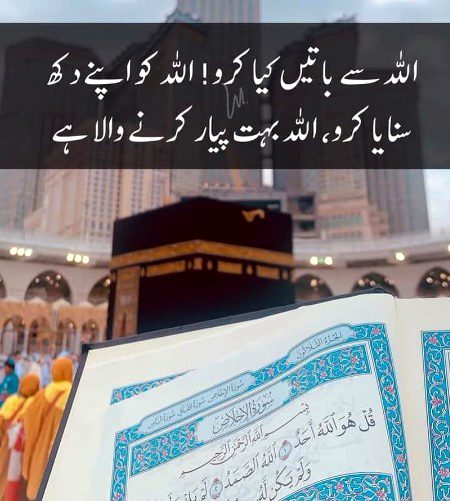 اللہ سے باتیں کیا کرو! اللہ کو اپنے دکھ
سنایا کرو، اللہ بہت پیار کرنے والا ہے
سُورَةُ الإِخْلَاصِ
بِسْمِ اللَّهِ الرَّحْمَٰنِ الرَّحِيمِ
قُلْ هُوَ اللَّهُ أَحَدٌ ۝ اللَّهُ الصَّمَدُ ۝ لَمْ
وَلَمْ يَكُن لَّهُ